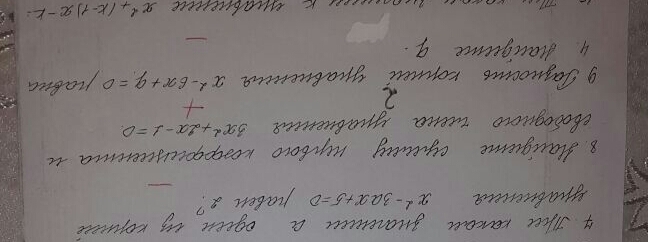 7. При каком значении а один из корней
уравнения x²-3ax+5=0 равен 2?
8. Найдите сумму первого коэффициента и
свободного члена уравнения 3x²+2x-1=0
2
9 Разность корней уравнения x²-6x+q=0 равна
4. Найдите q.
При каком k уравнение x²+(k-1)x-k